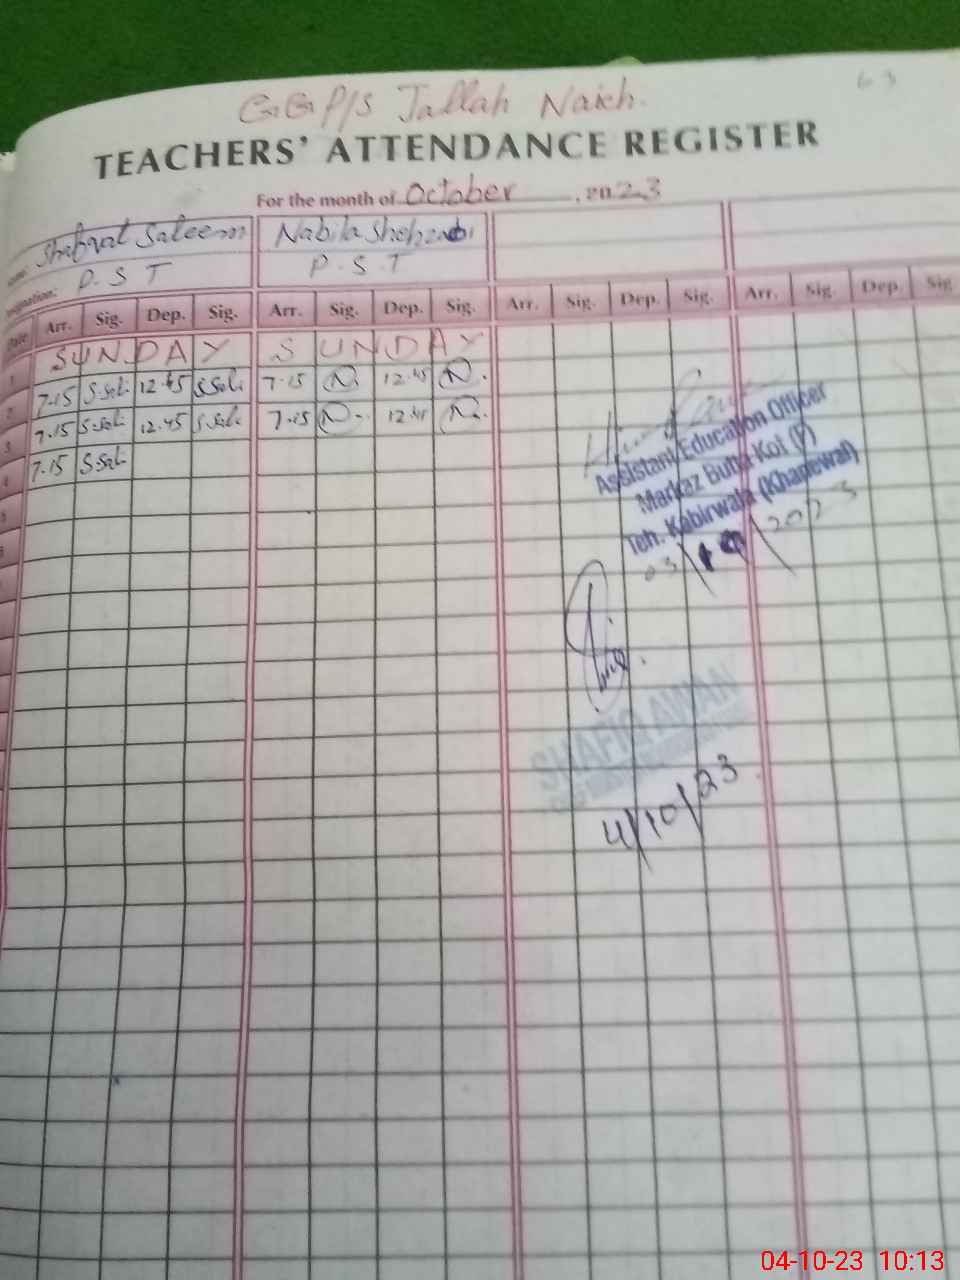 63
GGP/S Jallah Naich.
TEACHERS' ATTENDANCE REGISTER
For the month of October, 2023
Saleem Nabila
Designation: P.S.T P.S.T
Date Arr. Sig. Dep. Sig. Arr. Sig. Dep. Sig. Arr. Sig. Dep. Sig. Arr. Sig. Dep. Sig.
1 SUNDAY SUNDAY
2 7.15 S.Sali 12.45 S.Sali 7.15 N. 12.45 N.
3 7.15 S.Sali 12.45 S.Sali 7.15 N. 12.45 N.
4 7.15 S.Sali
5
6
Assistant Education Officer
Markaz Butta Kot (F)
Teh. Kabirwala (Khanewal)
03/10/2023
SHAFIQ AWAN
4/10/23
04-10-23 10:13